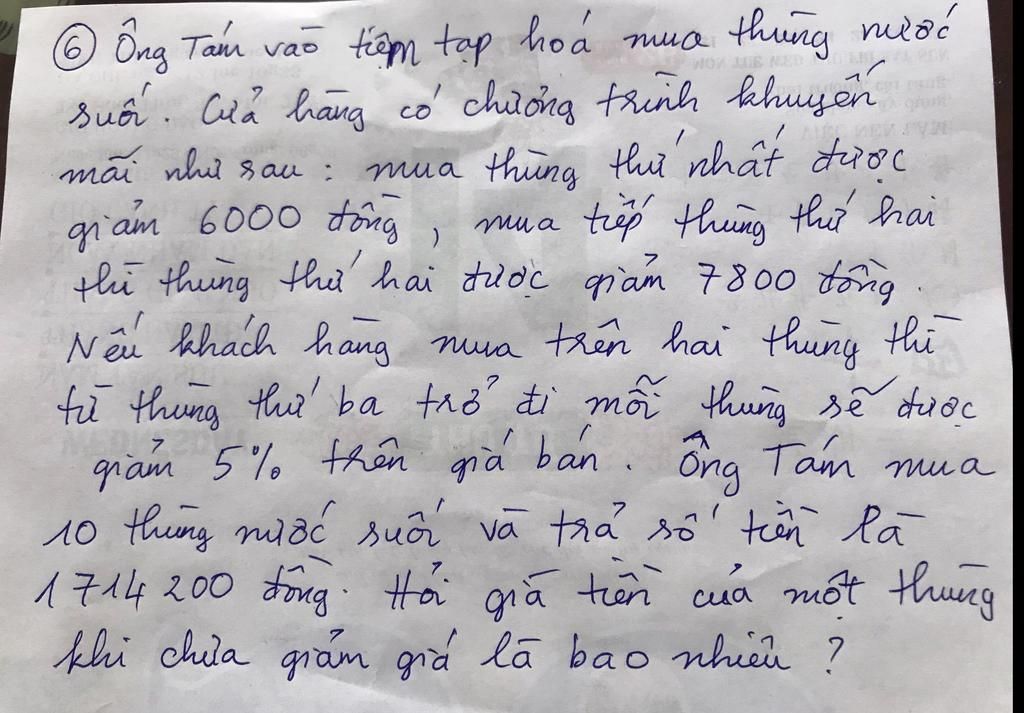 ⑥ Ông Tám vào tiệm tạp hoá mua thùng nước
suối. Cửa hàng có chương trình khuyến
mãi như sau: mua thùng thứ nhất được
giảm 6000 đồng, mua tiếp thùng thứ hai
thì thùng thứ hai được giảm 7800 đồng.
Nếu khách hàng mua trên hai thùng thì
từ thùng thứ ba trở đi mỗi thùng sẽ được
giảm 5% trên giá bán. Ông Tám mua
10 thùng nước suối và trả số tiền là
1714200 đồng. Hỏi giá tiền của một thùng
khi chưa giảm giá là bao nhiêu?